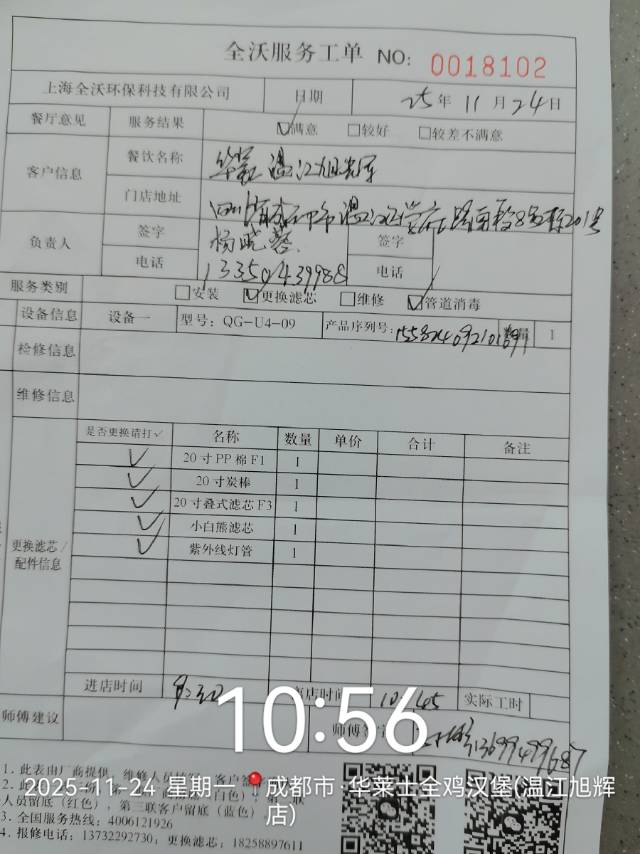 全沃服务工单 NO: 0018102
上海全沃环保科技有限公司 日期 25年 11月 24日
餐厅意见 服务结果 ☑满意 □较好 □较差不满意
客户信息 餐饮名称 温江旭辉
门店地址 温江区 路南段8号 201号
负责人 签字 杨晓蓉 签字
电话 13350439988 电话
服务类别 □安装 ☑更换滤芯 □维修 ☑管道消毒
设备信息 设备一 型号: QG-U4-09 产品序列号: 数量 1
检修信息
维修信息
更换滤芯/配件信息 是否更换请打✓ 名称 数量 单价 合计 备注
✓ 20寸PP棉F1 1
✓ 20寸炭棒 1
✓ 20寸叠式滤芯F3 1
✓ 小白熊滤芯 1
✓ 紫外线灯管 1
进店时间 店时间 实际工时
师傅建议 师傅 13699499687
10:56
1. 此表由厂商提供, 维修人员
2025-11-24 星期一 成都市·华莱士全鸡汉堡(温江旭辉店)
人员留底(红色), 第三联客户留底(蓝色)
3. 全国服务热线: 4006121926
4. 报修电话: 13732292730; 更换滤芯: 18258897611